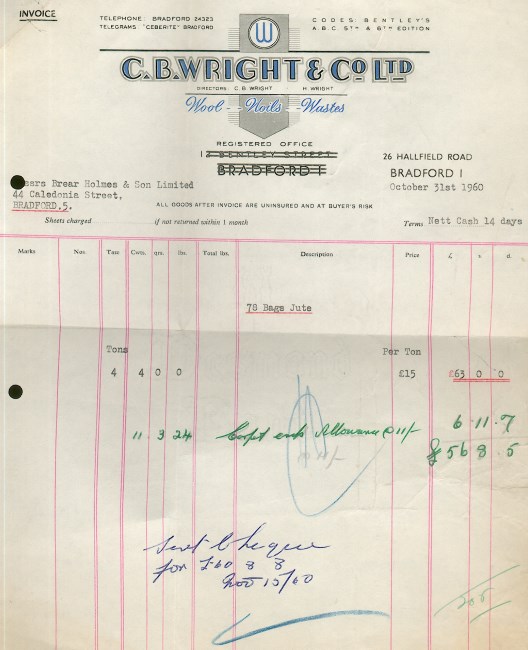 INVOICE
TELEPHONE: BRADFORD 24323
TELEGRAMS "CEBERITE" BRADFORD
W
CODES: BENTLEY'S
A.B.C. 5TH & 6TH EDITION
C.B.WRIGHT & CO LTD
DIRECTORS: C B WRIGHT · H WRIGHT
Wool - - Noils - - Wastes
REGISTERED OFFICE
BENTLEY STREET
BRADFORD 1
26 HALLFIELD ROAD
BRADFORD 1
October 31st 1960
Brear Holmes & Son Limited
44 Caledonia Street,
BRADFORD.5.
ALL GOODS AFTER INVOICE ARE UNINSURED AND AT BUYER'S RISK
Sheets charged if not returned within 1 month
Terms Nett Cash 14 days
Marks Nos. Tare Cwts. qrs. lbs. Total lbs. Description Price £ s. d.
78 Bags Jute
Tons Per Ton
4 4 0 0 £15 £63 0 0
11 . 3 24 Allowance @ 11/- 6 . 11 . 7
£ 56 8 . 5
Sent Cheque
for £60 8 8
Nov 15/60